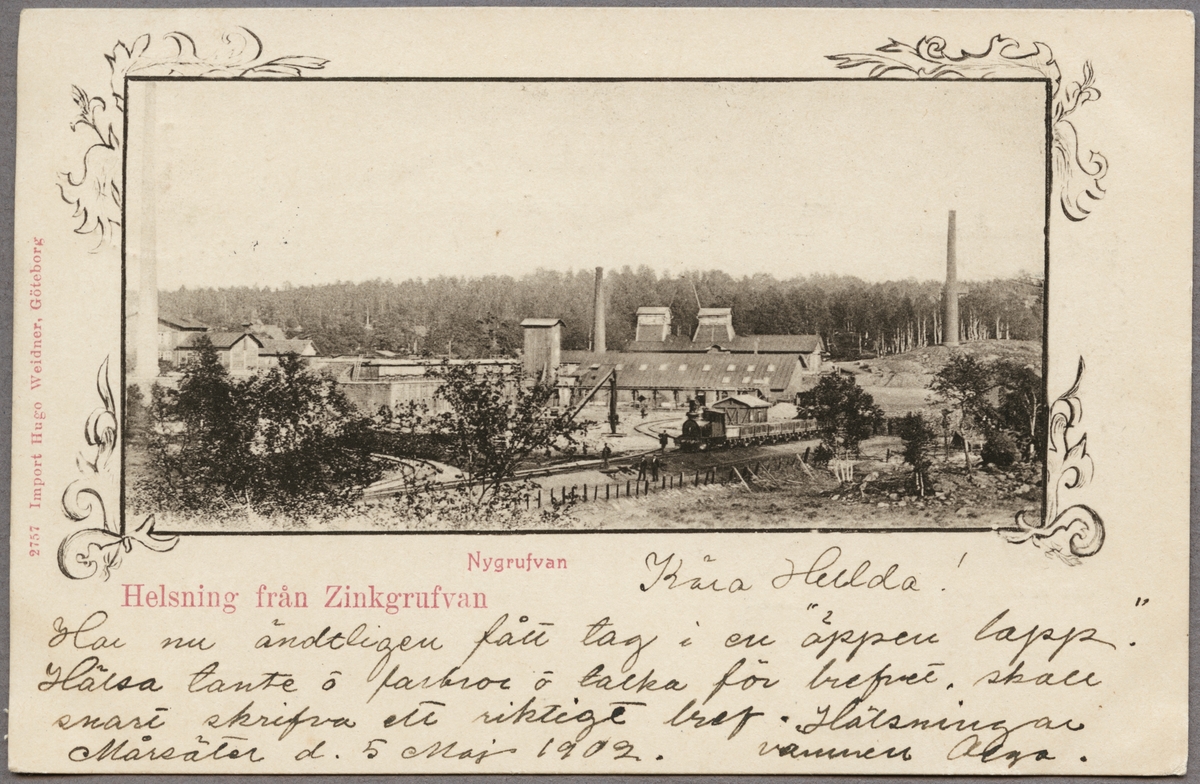 2757 Import Hugo Weidner, Göteborg
Nygrufvan
Helsning från Zinkgrufvan
Kära Hulda!
Har nu ändtligen fått tag i en "öppen lapp".
Hälsa tante o farbror o tacka för brefvet, skall
snart skrifva ett riktigt bref. Hälsningar
Mårsäter d. 5 Maj 1902. vännen Olga.